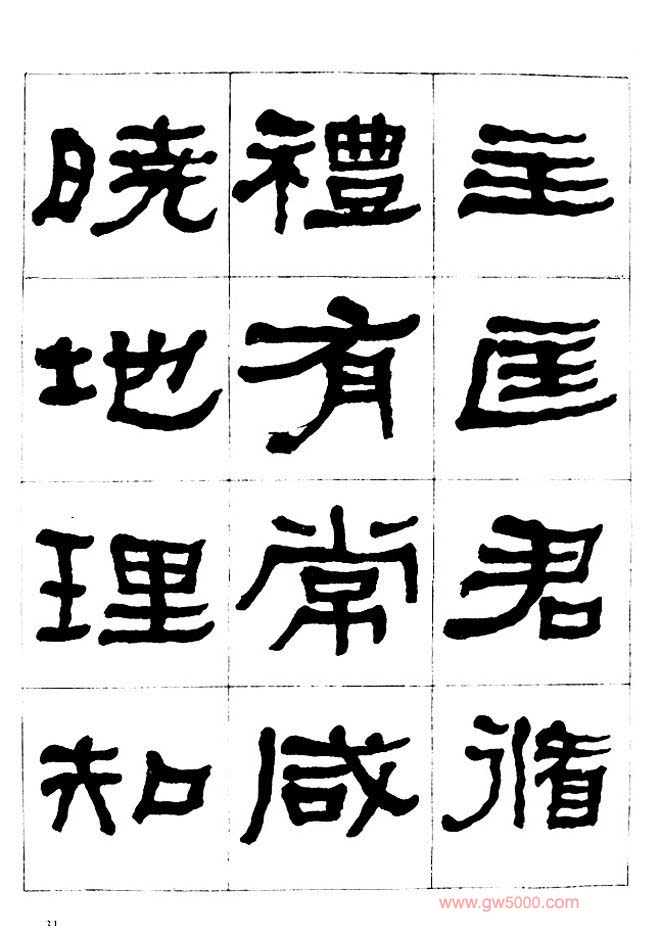 主匡君循
禮有常咸
曉地理知
31
www.gw5000.com